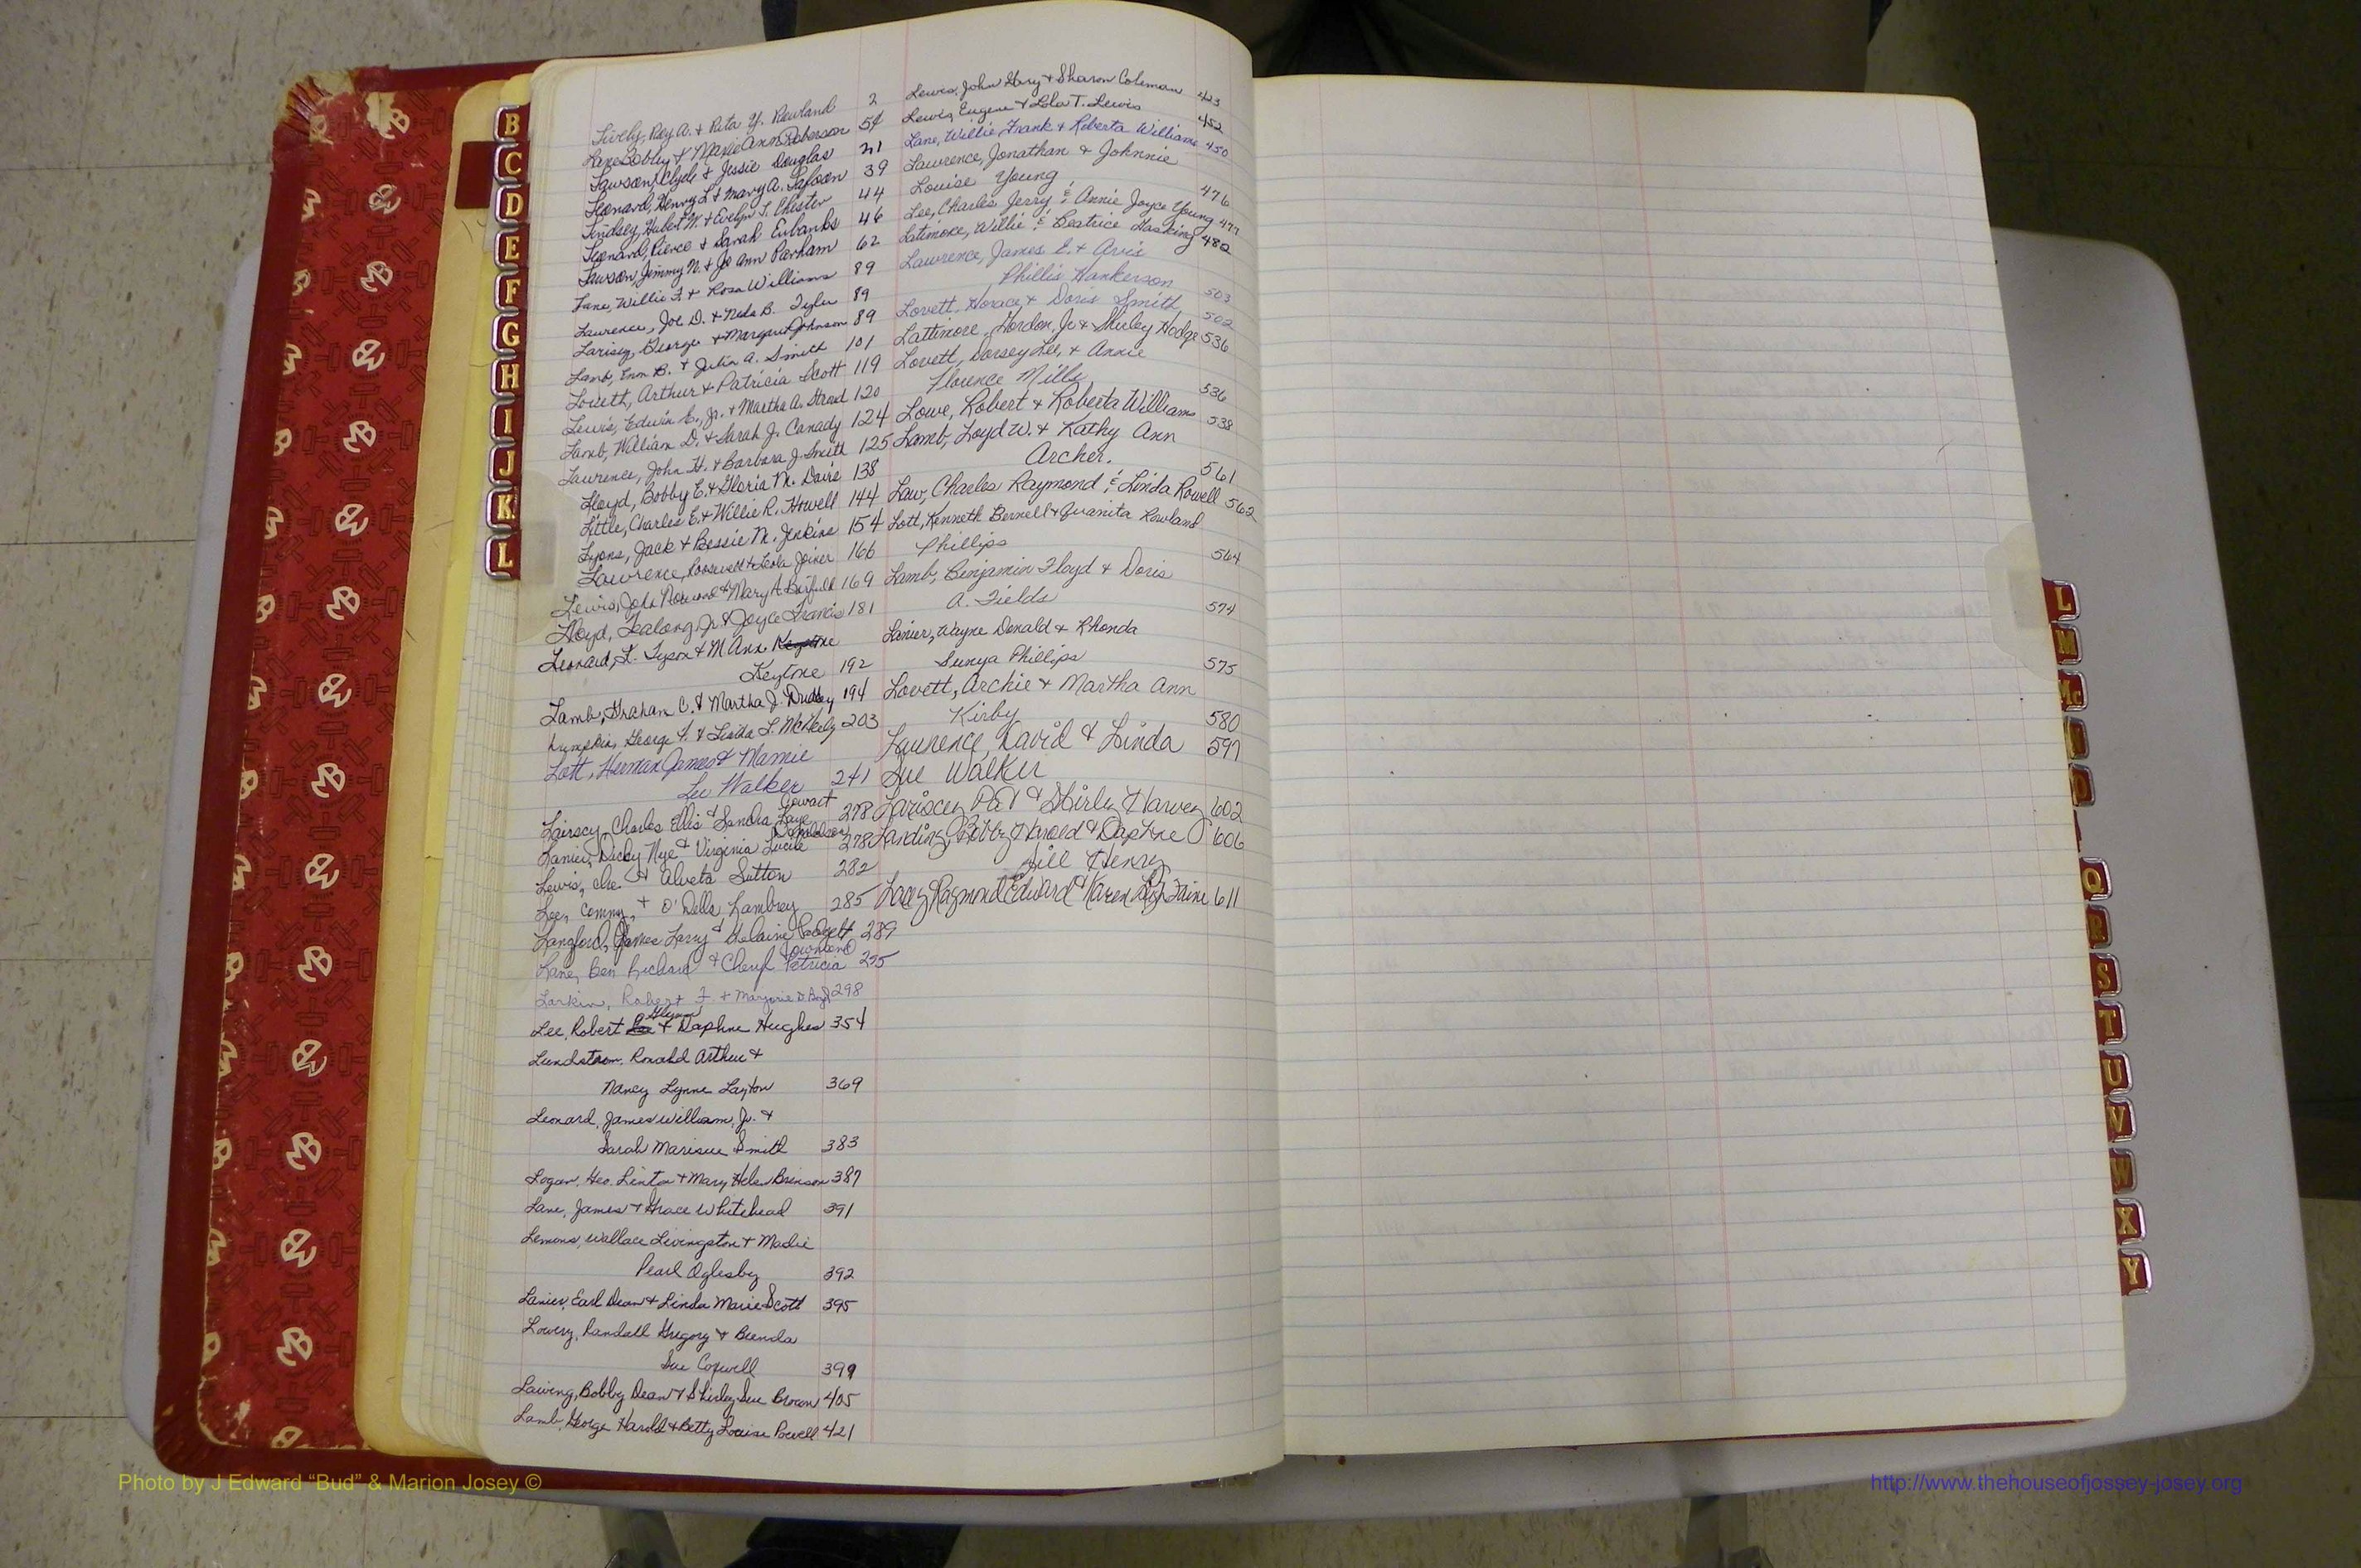 Lively, Roy A. + Rita Y. Rowland 2
Lane Bobby + Marie Ann Roberson 54
Lawson, Clyde + Jessie Douglas 21
Leonard, Henry L + Mary A. 39
Lindsey, Hubert W. + Evelyn L. Chester 44
Leonard, Pierce + Sarah Eubanks 46
Lawson, Jimmy N. + Jo Ann Parham 62
Lane, Willie F. + Rosa Williams 89
Lawrence, Joe D. + B. 89
Lariscy, George + Margaret Johnson 89
Lamb, B. + Julia A. Smith 101
Loveth, Arthur + Patricia Scott 119
Lewis, Edwin E., Jr. + Martha A. 120
Lamb, William D. + Sarah J. Canady 124
Lawrence, John H. + Barbara J. Smith 125
Lloyd, Bobby E. + Gloria M. Davis 138
Little, Charles E. + Willie R. Howell 144
Lyons, Jack + Bessie M. Jenkins 154
Lawrence, Roosevelt + Leola Joiner 166
Lewis, John + Mary A. Barfield 169
Lloyd, Jr. + Joyce Francis 181
Leonard, L. Tyson + M Ann
Keytone 192
Lamb, Graham C. + Martha J. Dudley 194
Lumpkin, George + 203
Lott, Herman James + Mamie
Lee Walker 241
Cowart
Lairscy, Charles Ellis + Sandra Faye 278
Donaldson
Lanier, Dicky Nye + Virginia Lucile 278
Lewis, + Alveta Sutton 282
Lee, + O'Della Lambrey 285
Langford, James Larry + Elaine Padgett 289
Townsend
Lane, Ben Richard + Cheryl Patricia 295
Larkin, Robert F. + Marjorie D. Boyd 298
Glynn
Lee, Robert Lee + Daphne Hughes 354
Lundstrom, Ronald Arthur +
Nancy Lynne Layton 369
Leonard, James William, Jr. +
Sarah Marisue Smith 383
Logan, Geo. Linton + Mary Helen Brinson 387
Lane, James + Grace Whitehead 391
Lemons, Wallace Livingston + Madie
Pearl Oglesby 392
Lanier, Earl Dean + Linda Marie Scott 395
Lowery, Randall Gregory + Brenda
Sue Cowell 399
Lawing, Bobby Dean + Shirley Sue Brown 405
Lamb, George Harold + Betty Louise Powell 421
Lewis, John Gary + Sharon Coleman 423
Lewis, Eugene + Lola T. Lewis 452
Lane, Willie Frank + Roberta Williams 450
Lawrence, Jonathan & Johnnie
Louise Young 476
Lee, Charles Jerry & Annie Joyce Young 477
Latimore, Willie & Beatrice Gaskins 482
Lawrence, James E. + Avis
Phillis Hankerson 503
Lovett, Horace + Doris Smith 502
Lattimore, Gordon, Jr + Shirley Hodge 536
Lovett, Dorsey Lee, + Annie
Florence Mills 536
Lowe, Robert + Roberta Williams 538
Lamb, Loyd W. + Kathy Ann
Archer. 561
Law, Charles Raymond & Linda Rowell 562
Lott, Kenneth Bernell + Juanita Rowland
Phillips 564
Lamb, Benjamin Floyd + Doris
A. Fields 574
Lanier, Wayne Donald + Rhonda
Sunya Phillips 575
Lovett, Archie + Martha Ann
Kirby 580
Laurence, David & Linda 597
Sue Walker
Lariscey, Pat & Shirley Harvey 602
Landing, Bobby Harold & Daphne 606
Jill Henry
Lacey, Raymond Edward & Karen Faine 611
B
C
D
E
F
G
H
I
J
K
L
L
M
Mc
Q
R
S
T
U
V
W
X
Y
Photo by J Edward “Bud” & Marion Josey ©
http://www.thehouseofjossey-josey.org